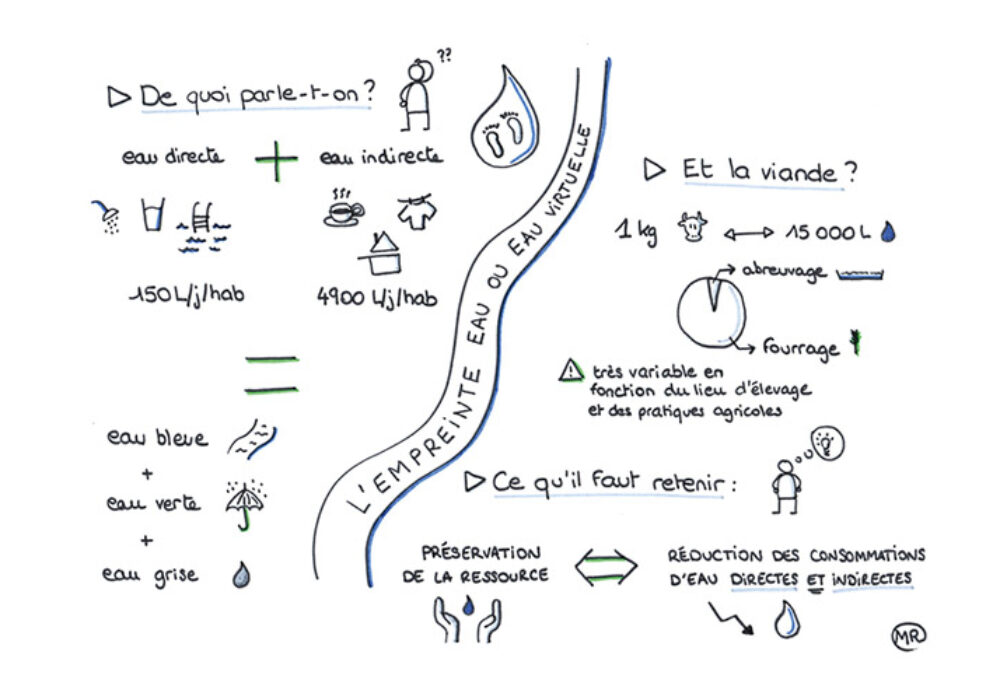 De quoi parle-t-on ?
??
eau directe + eau indirecte
150 L/j/hab
4900 L/j/hab
=
eau bleue
+
eau verte
+
eau grise
L'EMPREINTE EAU OU EAU VIRTUELLE
Et la viande ?
1 kg
15 000 L
abreuvage
fourrage
très variable en
fonction du lieu d'élevage
et des pratiques agricoles
Ce qu'il faut retenir :
PRÉSERVATION
DE LA RESSOURCE
RÉDUCTION DES CONSOMMATIONS
D'EAU DIRECTES ET INDIRECTES
MR